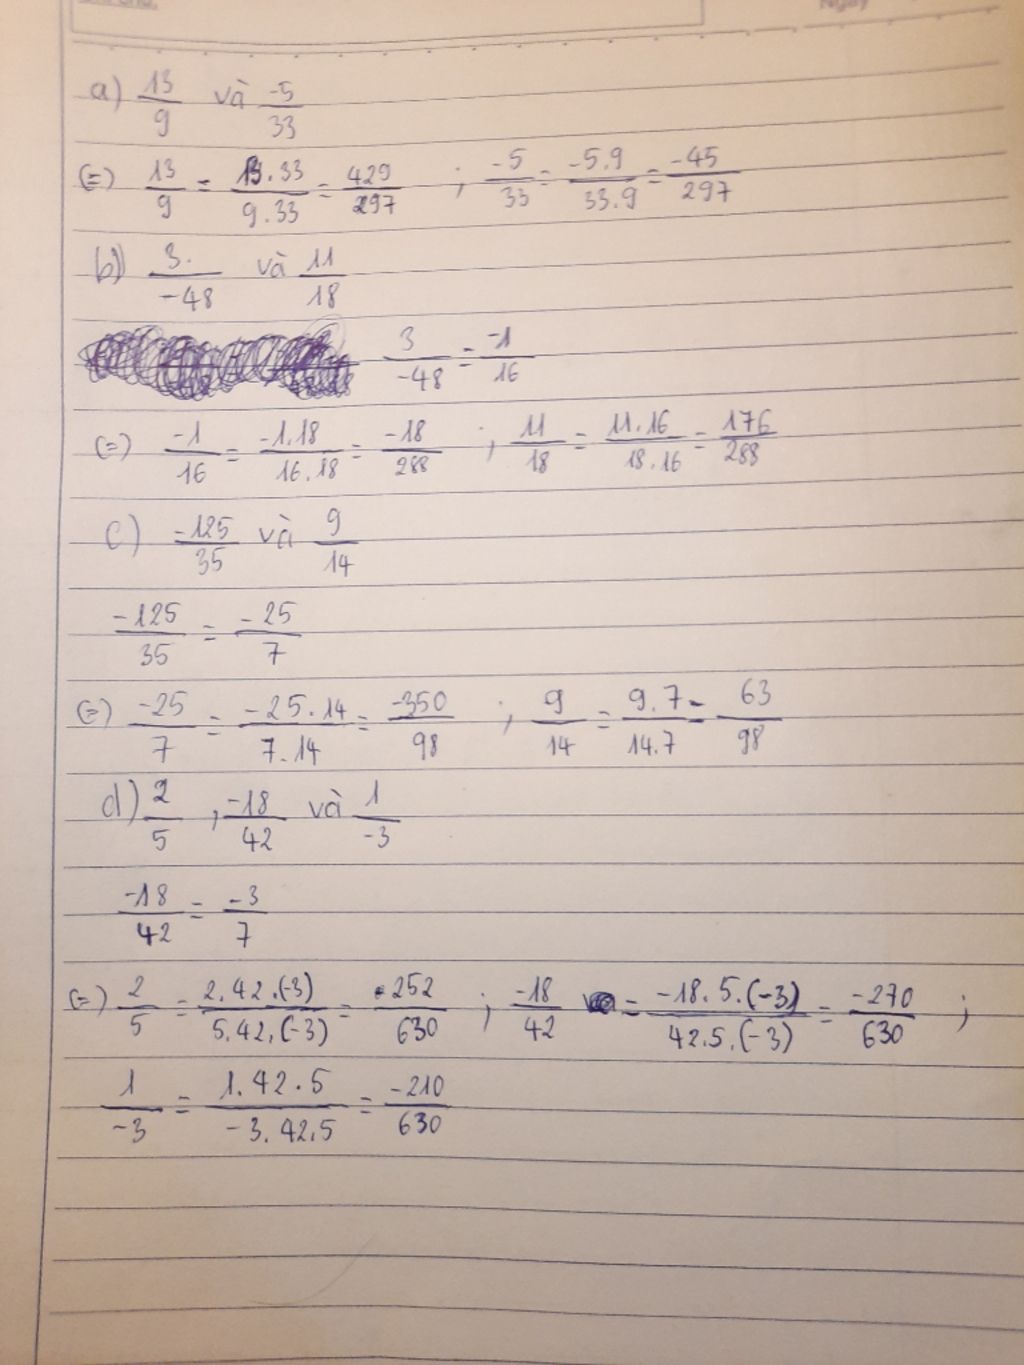 Ngày
a) 13/9 và -5/33
(=) 13/9 = 13.33/9.33 = 429/297 ; -5/33 = -5.9/33.9 = -45/297
b) 3/-48 và 11/18
3/-48 = -1/16
(=) -1/16 = -1.18/16.18 = -18/288 ; 11/18 = 11.16/18.16 = 176/288
c) -125/35 và 9/14
-125/35 = -25/7
(=) -25/7 = -25.14/7.14 = -350/98 ; 9/14 = 9.7/14.7 = 63/98
d) 2/5 , -18/42 và 1/-3
-18/42 = -3/7
(=) 2/5 = 2.42.(-3)/5.42.(-3) = 252/630 ; -18/42 = -18.5.(-3)/42.5.(-3) = -270/630 ;
1/-3 = 1.42.5/-3.42.5 = -210/630